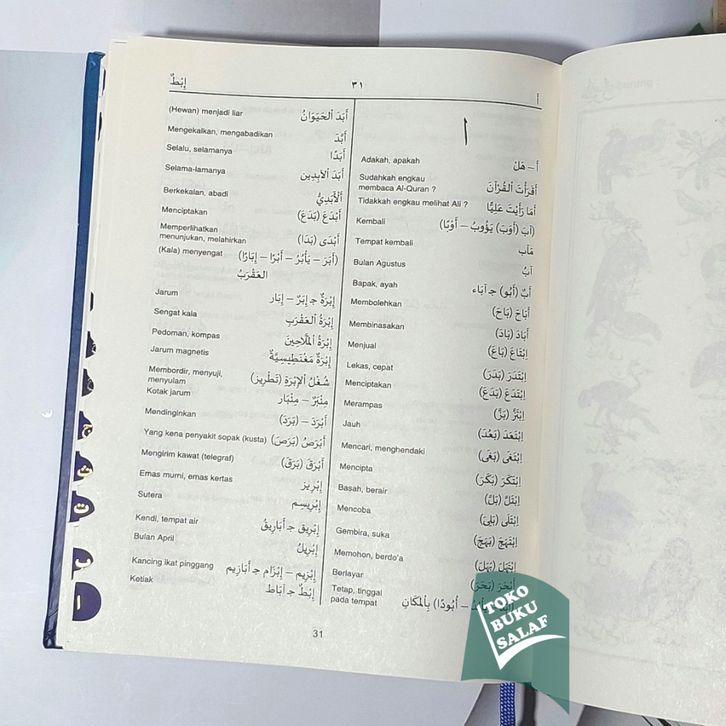 أ
٣١
إِبْطٌ
ا
أ – هَلْ Adakah, apakah
أَقَرَأْتَ الْقُرْآنَ Sudahkah engkau
membaca Al-Quran ?
أَمَا رَأَيْتَ عَلِيًّا Tidakkah engkau melihat Ali ?
(آبَ (أَوَبَ) يَؤُوبُ – أَوْبًا) Kembali
مَآب Tempat kembali
آبُ Bulan Agustus
أَبٌ (أَبُو) جـ آبَاء Bapak, ayah
أَبَاحَ (بَاحَ) Membolehkan
أَبَادَ (بَادَ) Membinasakan
اِبْتَاعَ (بَاعَ) Menjual
اِبْتَدَرَ (بَدَرَ) Lekas, cepat
اِبْتَدَعَ (بَدَعَ) Menciptakan
اِبْتَزَّ (بَزَّ) Merampas
اِبْتَعَدَ (بَعُدَ) Jauh
اِبْتَغَى (بَغَى) Mencari, menghendaki
اِبْتَكَرَ (بَكَرَ) Mencipta
اِبْتَلَّ (بَلَّ) Basah, berair
اِبْتَلَى (بَلَى) Mencoba
اِبْتَهَجَ (بَهَجَ) Gembira, suka
اِبْتَهَلَ (بَهَلَ) Memohon, berdo'a
أَبْحَرَ (بَحَرَ) Berlayar
أُبُودًا) بِالْمَكَانِ Tetap, tinggal
pada tempat
أَبَدَ الْحَيَوَانُ (Hewan) menjadi liar
أَبَّدَ Mengekalkan, mengabadikan
أَبَدًا Selalu, selamanya
أَبَدَ الْآبِدِينَ Selama-lamanya
اَلْأَبَدِيُّ Berkekalan, abadi
أَبْدَعَ (بَدَعَ) Menciptakan
أَبْدَى (بَدَا) Memperlihatkan
menunjukan, melahirkan
(أَبَرَ – يَأْبُرُ – أَبْرًا – إِبَارًا) (Kala) menyengat
العَقْرَبُ
إِبْرَةٌ جـ إِبَرٌ – إِبَار Jarum
إِبْرَةُ الْعَقْرَبِ Sengat kala
إِبْرَةُ الْمَلَّاحِينَ Pedoman, kompas
إِبْرَةٌ مَغْنَطِيسِيَّةٌ Jarum magnetis
شُغْلُ الْإِبْرَةِ (تَطْرِيز) Membordir, menyuji,
menyulam
مِئْبَرٌ – مِئْبَار Kotak jarum
أَبْرَدَ – (بَرَدَ) Mendinginkan
أَبْرَصُ (بَرَصَ) Yang kena penyakit sopak (kusta)
أَبْرَقَ (بَرَقَ) Mengirim kawat (telegraf)
إِبْرِيز Emas murni, emas kertas
إِبْرِيسِم Sutera
إِبْرِيق جـ أَبَارِيقُ Kendi, tempat air
إِبْرِيلُ Bulan April
إِبْزِيم – إِبْزَام جـ أَبَازِيم Kancing ikat pinggang
إِبْطٌ جـ آبَاط Ketiak
31
TOKO
BUKU
SALAF